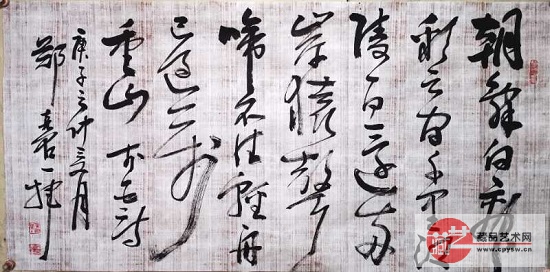 朝辞白帝
彩云间千里江
陵一日還两
岸猿聲
啼不住輕舟
已過万
重山
庚子
三月
鄭
藏品艺术网
www.cpysw.cn